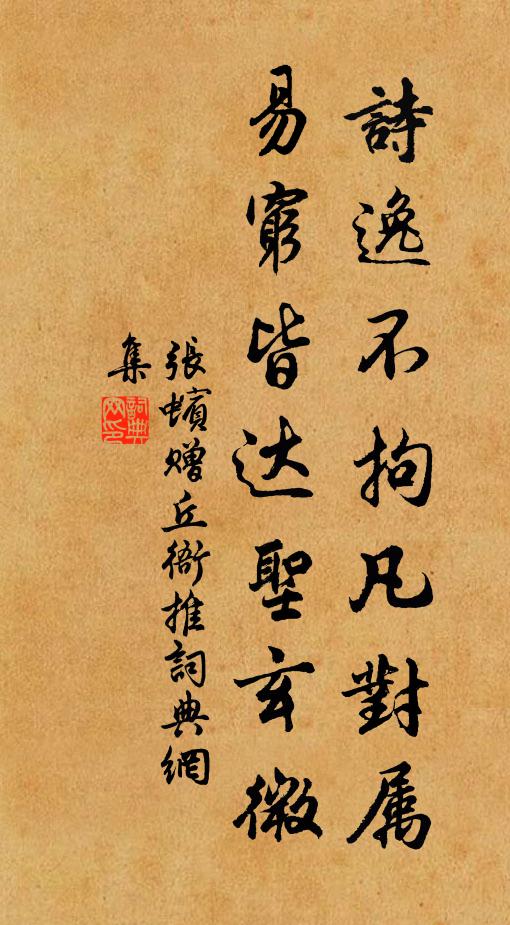 詩逸不拘凡對属
易窮皆达聖玄微
張蠙赠丘衙推詞典網
集
詞典
网印